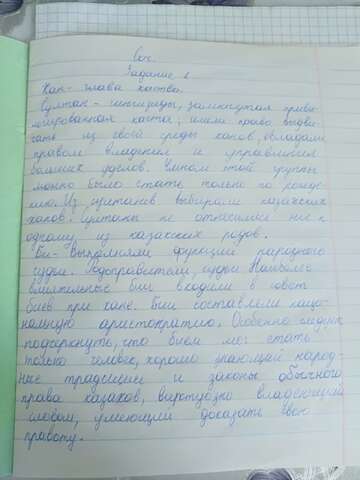 Сок.
Задание 1
Хан- глава ханства.
Султан - чингизиды, замкнутая приви-
легированная каста, имели право выдви-
гать из своей среды ханов, обладали
правом владения и управления
больших уделов. Членом этой группы
можно было стать только по рожде-
нию. Из султанов выбирали казахских
ханов. султаны не относились ни к
одному из казахских родов.
Би- Выполняли функции народного
судьи. Родоправители, судьи Наиболее
влиятельные бии входили в совет
биев при хане. Бии составляли наци-
ональную аристократию. Особенно следует
подчеркнуть, что бием мог стать
только человек, хорошо знающий народ-
ные традиции и законы обычного
права казахов, виртуозно владеющий
словом, умеющий доказать свою
правоту.